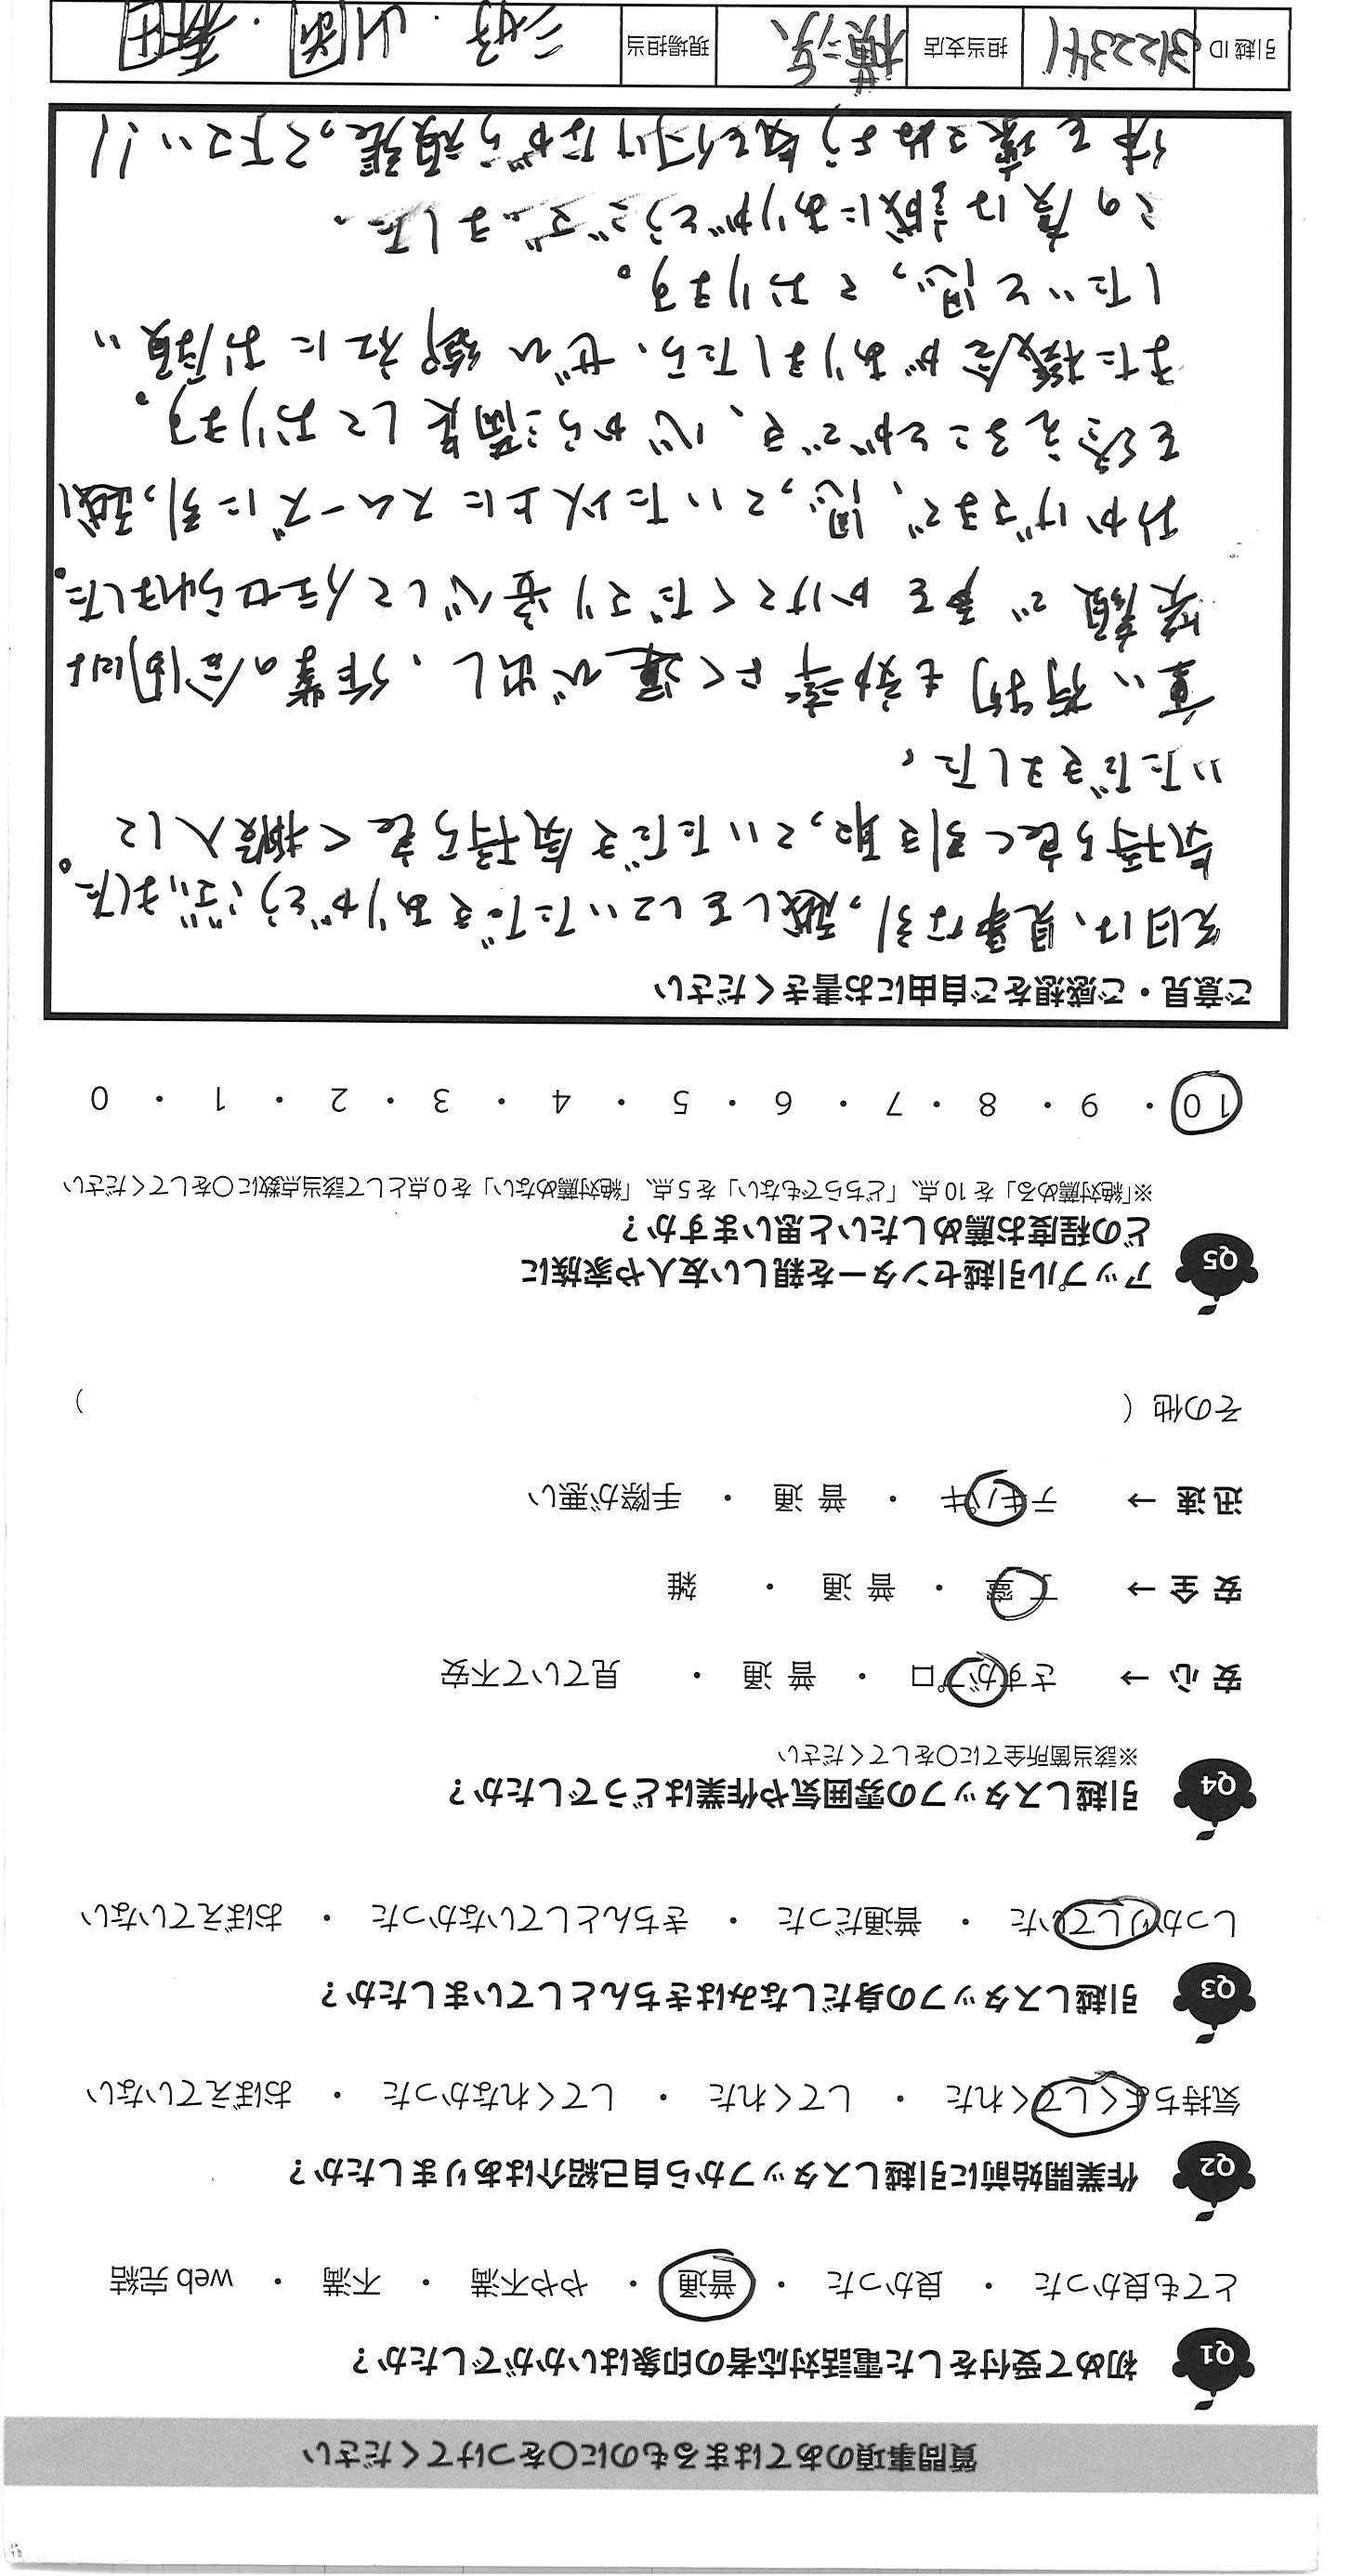 質問事項のあてはまるものに〇をつけてください
Q1 初めて受付をした電話対応者の印象はいかがでしたか？
とても良かった ・ 良かった ・ 普通 ・ やや不満 ・ 不満 ・ web 完結
Q2 作業開始前に引越しスタッフから自己紹介はありましたか？
気持ちよくしてくれた ・ してくれた ・ してくれなかった ・ おぼえていない
Q3 引越しスタッフの身だしなみはきちんとしていましたか？
しっかりしていた ・ 普通だった ・ きちんとしていなかった ・ おぼえていない
Q4 引越しスタッフの雰囲気や作業はどうでしたか？
※該当箇所全てに〇をしてください
安心 → さすがプロ ・ 普通 ・ 見ていて不安
安全 → 丁寧 ・ 普通 ・ 雑
迅速 → テキパキ ・ 普通 ・ 手際が悪い
その他（ ）
Q5 アップル引越センターを親しい友人や家族に
どの程度お薦めしたいと思いますか？
※「絶対薦める」を 10 点、「どちらでもない」を 5 点、「絶対薦めない」を 0 点として該当点数に〇をしてください
10 ・ 9 ・ 8 ・ 7 ・ 6 ・ 5 ・ 4 ・ 3 ・ 2 ・ 1 ・ 0
ご意見・ご感想をご自由にお書きください
先日は、見事な引っ越しをしていただきありがとうございました。
気持ち良く引き取っていただき気持ち良く搬入して
いただきました。
重い荷物も効率よく運び出し、作業の合間にも
笑顔で声をかけてくださり安心して任せられました。
おかげさまで、思っていた以上にスムーズに引っ越し
を終えることができ、心から満足しております。
また機会がありましたら、ぜひ御社にお願い
したいと思っております。
この度は誠にありがとうございました。
体を壊さぬよう気を付けながら頑張って下さい!!
引越 ID 3122341 担当支店 横浜 現場担当 三好・山